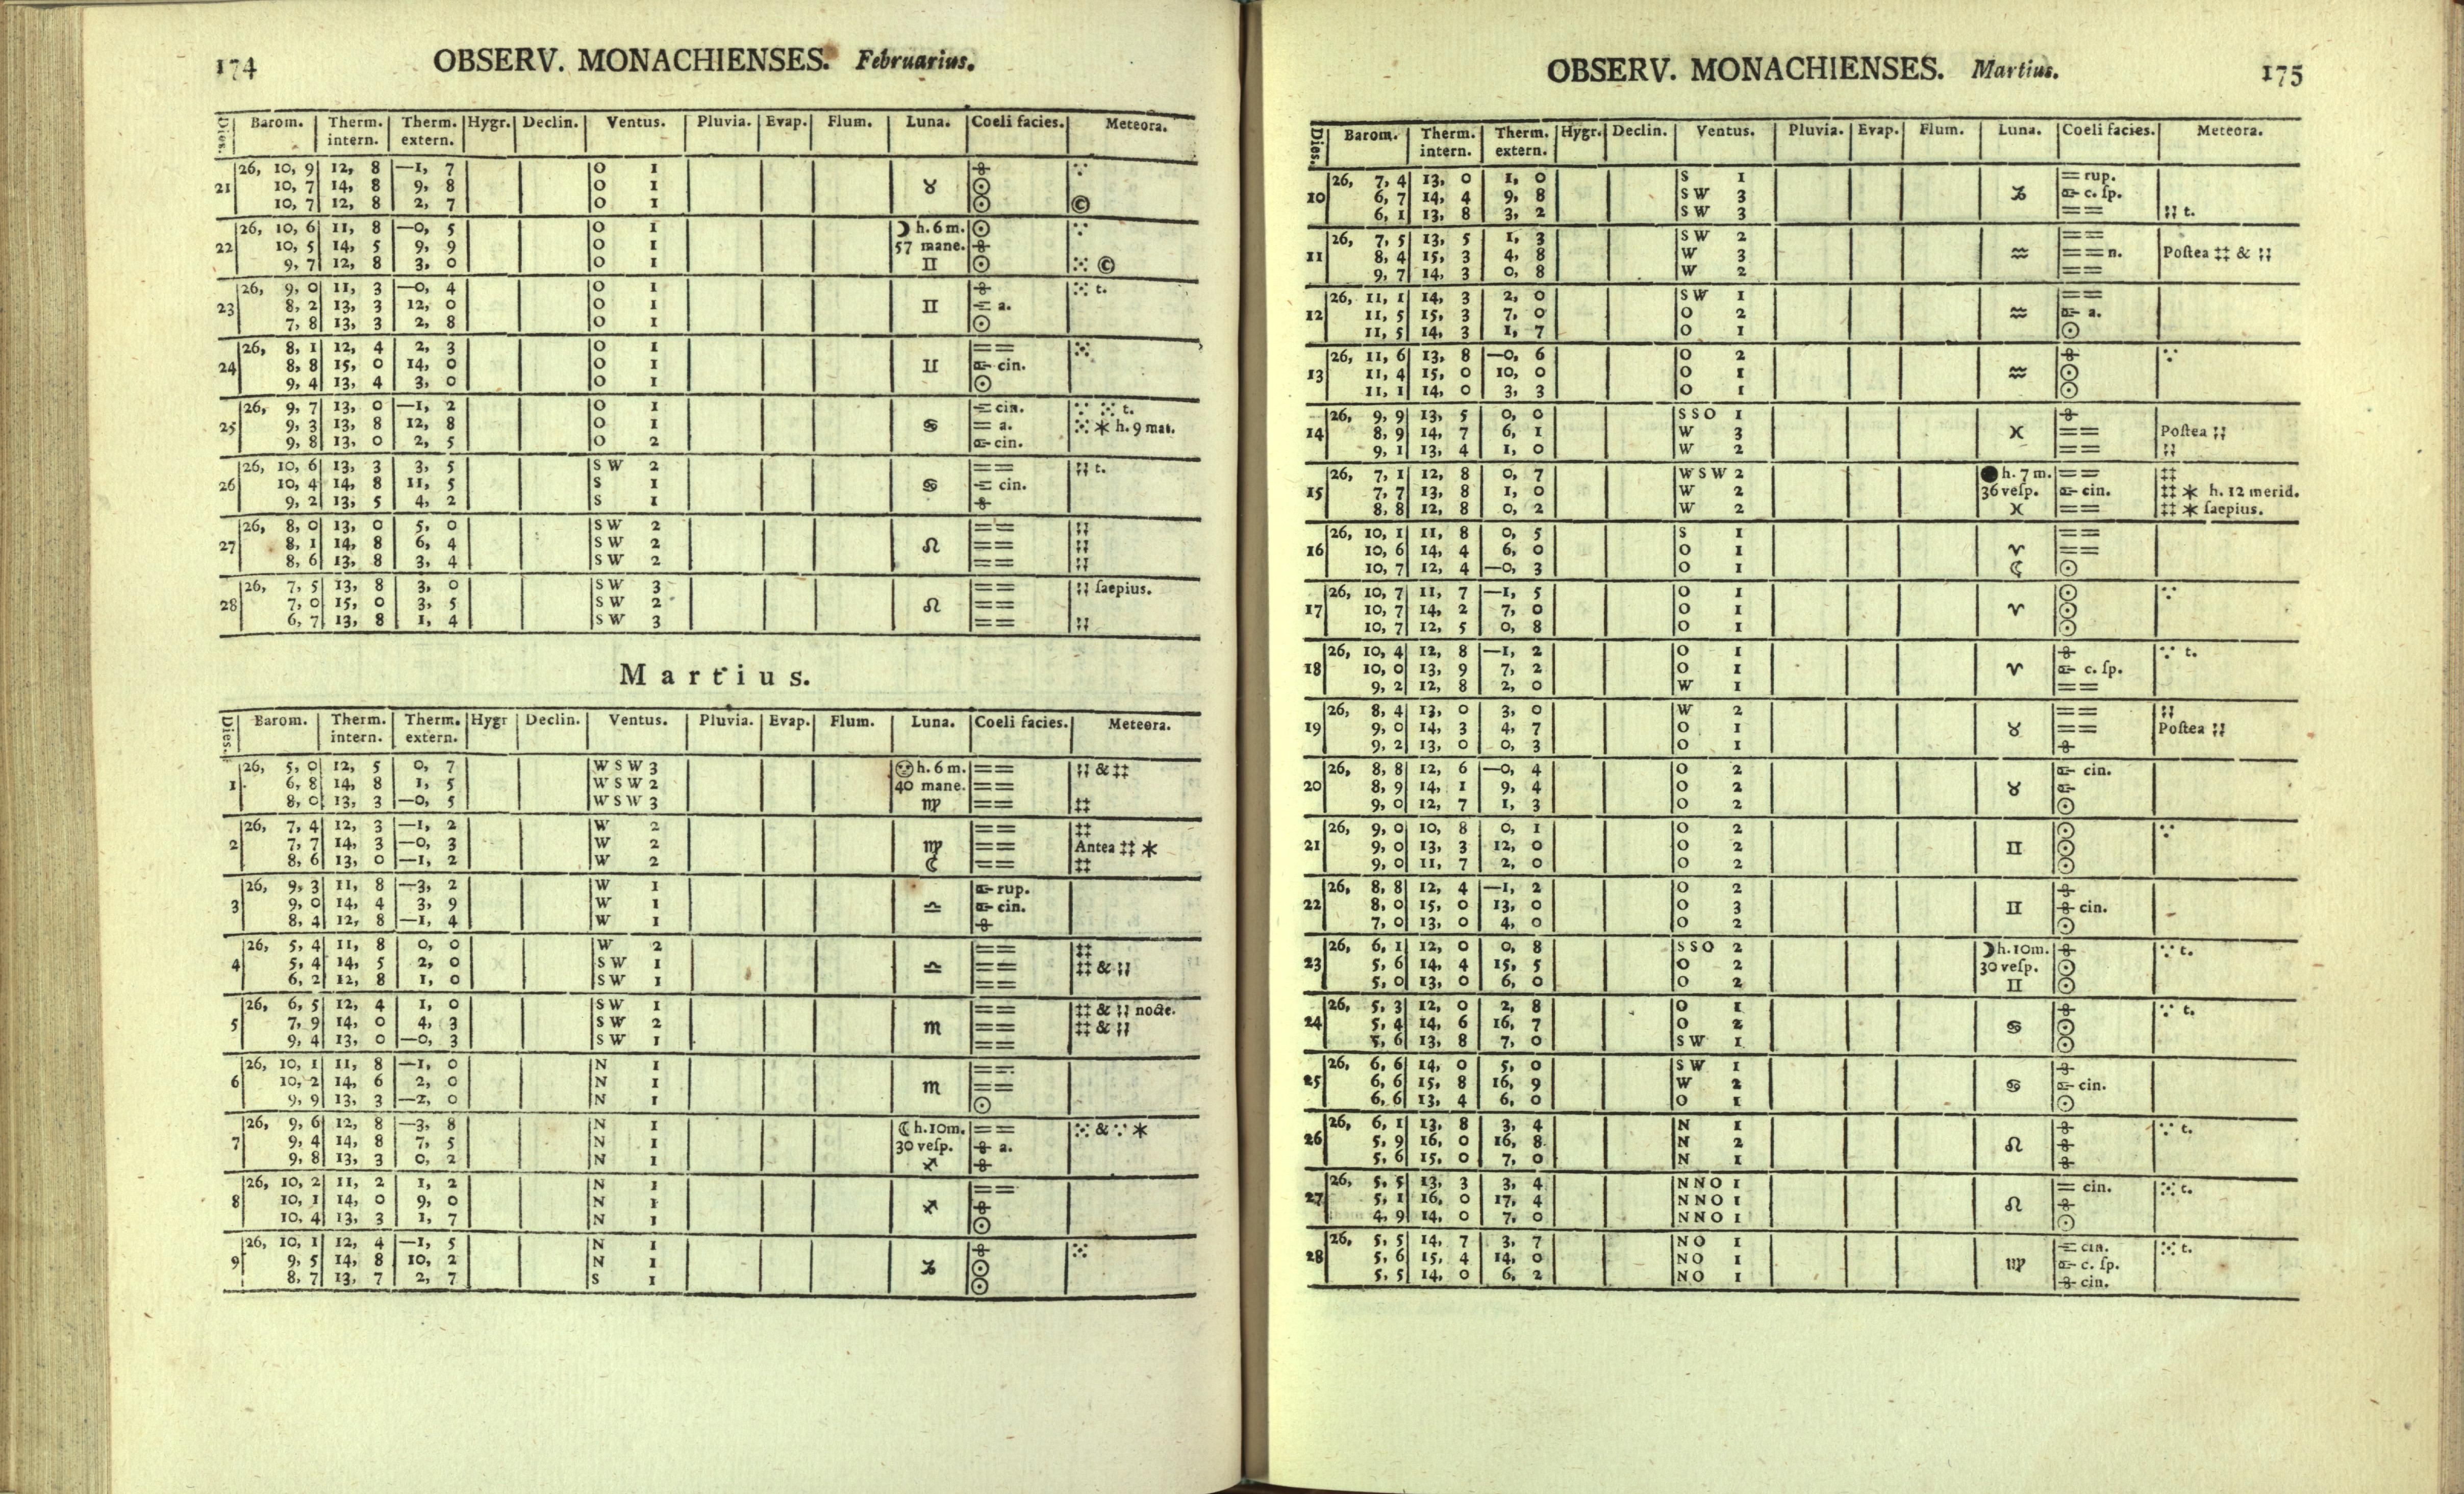 174 OBSERV. MONACHIENSES. Februarius.
Dies. Barom. Therm. intern. Therm. extern. Hygr. Declin. Ventus. Pluvia. Evap. Flum. Luna. Coeli facies. Meteora.
26, 10, 9 12, 8 —1, 7 O 1
21 10, 7 14, 8 9, 8 O 1 ♉ ☉
10, 7 12, 8 2, 7 O 1 ☉ ©
26, 10, 6 11, 8 —0, 5 O 1 ☽ h. 6 m. ☉ ∵
22 10, 5 14, 5 9, 9 O 1 57 mane.
9, 7 12, 8 3, 0 O 1 ♊ ☉ ⁙ ©
26, 9, 0 11, 3 —0, 4 O 1 ⁙ t.
23 8, 2 13, 3 12, 0 O 1 ♊ a.
7, 8 13, 3 2, 8 O 1 ☉
26, 8, 1 12, 4 2, 3 O 1 == ⁙
24 8, 8 15, 0 14, 0 O 1 ♊ cin.
9, 4 13, 4 3, 0 O 1 ☉
26, 9, 7 13, 0 —1, 2 O 1 cin. ∵ ⁙ t.
25 9, 3 13, 8 12, 8 O 1 ♋ = a. ⁙ * h. 9 mat.
9, 8 13, 0 2, 5 O 2 cin.
26, 10, 6 13, 3 3, 5 S W 2 == ;; t.
26 10, 4 14, 8 11, 5 S 1 ♋ cin.
9, 2 13, 5 4, 2 S 1
26, 8, 0 13, 0 5, 0 S W 2 == ;;
27 8, 1 14, 8 6, 4 S W 2 ♌ == ;;
8, 6 13, 8 3, 4 S W 2 == ;;
26, 7, 5 13, 8 3, 0 S W 3 == ;; ſaepius.
28 7, 0 15, 0 3, 5 S W 2 ♌ ==
6, 7 13, 8 1, 4 S W 3 == ;;
Martius.
Dies. Barom. Therm. intern. Therm. extern. Hygr Declin. Ventus. Pluvia. Evap. Flum. Luna. Coeli facies. Meteora.
26, 5, 0 12, 5 0, 7 W S W 3 h. 6 m. == ;; & ‡‡
1 6, 8 14, 8 1, 5 W S W 2 40 mane. ==
8, 0 13, 3 —0, 5 W S W 3 ♍ == ‡‡
26, 7, 4 12, 3 —1, 2 W 2 == ‡‡
2 7, 7 14, 3 —0, 3 W 2 ♍ == Antea ‡‡ *
8, 6 13, 0 —1, 2 W 2 ☾ == ‡‡
26, 9, 3 11, 8 —3, 2 W 1 rup.
3 9, 0 14, 4 3, 9 W 1 ♎ cin.
8, 4 12, 8 —1, 4 W 1
26, 5, 4 11, 8 0, 0 W 2 == ‡‡
4 5, 4 14, 5 2, 0 S W 1 ♎ == ‡‡ & ;;
6, 2 12, 8 1, 0 S W 1 ==
26, 6, 5 12, 4 1, 0 S W 1 == ‡‡ & ;; nocte.
5 7, 9 14, 0 4, 3 S W 2 ♏ == ‡‡ & ;;
9, 4 13, 0 —0, 3 S W 1 ==
26, 10, 1 11, 8 —1, 0 N 1 ==
6 10, 2 14, 6 2, 0 N 1 ♏ ==
9, 9 13, 3 —2, 0 N 1 ☉
26, 9, 6 12, 8 —3, 8 N 1 ☾ h. 10m. == ⁙ & ∵ *
7 9, 4 14, 8 7, 5 N 1 30 veſp. a.
9, 8 13, 3 0, 2 N 1 ♐
26, 10, 2 11, 2 1, 2 N 1 ==
8 10, 1 14, 0 9, 0 N 1 ♐
10, 4 13, 3 1, 7 N 1 ☉
26, 10, 1 12, 4 —1, 5 N 1 ⁙
9 9, 5 14, 8 10, 2 N 1 ♑ ☉
8, 7 13, 7 2, 7 S 1 ☉
OBSERV. MONACHIENSES. Martius. 175
Dies. Barom. Therm. intern. Therm. extern. Hygr. Declin. Ventus. Pluvia. Evap. Flum. Luna. Coeli facies. Meteora.
26, 7, 4 13, 0 1, 0 S 1 == rup.
10 6, 7 14, 4 9, 8 S W 3 ♑ c. ſp.
6, 1 13, 8 3, 2 S W 3 == ;; t.
26, 7, 5 13, 5 1, 3 S W 2 ==
11 8, 4 15, 3 4, 8 W 3 ♒ == n. Poſtea ‡‡ & ;;
9, 7 14, 3 0, 8 W 2 ==
26, 11, 1 14, 3 2, 0 S W 1 ==
12 11, 5 15, 3 7, 0 O 2 ♒ a.
11, 5 14, 3 1, 7 O 1 ☉
26, 11, 6 13, 8 —0, 6 O 2 ∵
13 11, 4 15, 0 10, 0 O 1 ♒ ☉
11, 1 14, 0 3, 3 O 1 ☉
26, 9, 9 13, 5 0, 0 S S O 1
14 8, 9 14, 7 6, 1 W 3 ♓ == Poſtea ;;
9, 1 13, 4 1, 0 W 2 == ;;
26, 7, 1 12, 8 0, 7 W S W 2 ● h. 7 m. == ‡‡
15 7, 7 13, 8 1, 0 W 2 36 veſp. cin. ‡‡ * h. 12 merid.
8, 8 12, 8 0, 2 W 2 ♓ == ‡‡ * ſaepius.
26, 10, 1 11, 8 0, 5 S 1 ==
16 10, 6 14, 4 6, 0 O 1 ♈ ==
10, 7 12, 4 —0, 3 O 1 ☾ ☉
26, 10, 7 11, 7 —1, 5 O 1 ☉ ∵
17 10, 7 14, 2 7, 0 O 1 ♈ ☉
10, 7 12, 5 0, 8 O 1 ☉
26, 10, 4 12, 8 —1, 2 O 1 ∵ t.
18 10, 0 13, 9 7, 2 O 1 ♈ c. ſp.
9, 2 12, 8 2, 0 W 1 ==
26, 8, 4 13, 0 3, 0 W 2 == ;;
19 9, 0 14, 3 4, 7 O 1 ♉ == Poſtea ;;
9, 2 13, 0 0, 3 O 1
26, 8, 8 12, 6 —0, 4 O 2 cin.
20 8, 9 14, 1 9, 4 O 2 ♉
9, 0 12, 7 1, 3 O 2 ☉
26, 9, 0 10, 8 0, 1 O 2 ☉ ∵
21 9, 0 13, 3 12, 0 O 2 ♊ ☉
9, 0 11, 7 2, 0 O 2 ☉
26, 8, 8 12, 4 —1, 2 O 2
22 8, 0 15, 0 13, 0 O 3 ♊ cin.
7, 0 13, 0 4, 0 O 2 ☉
26, 6, 1 12, 0 0, 8 S S O 2 ☽ h. 10m. ∵ t.
23 5, 6 14, 4 15, 5 O 2 30 veſp. ☉
5, 0 13, 0 6, 0 O 2 ♊ ☉
26, 5, 3 12, 0 2, 8 O 1 ∵ t.
24 5, 4 14, 6 16, 7 O 2 ♋ ☉
5, 6 13, 8 7, 0 S W 1 ☉
26, 6, 6 14, 0 5, 0 S W 1
25 6, 6 15, 8 16, 9 W 2 ♋ cin.
6, 6 13, 4 6, 0 O 1 ☉
26, 6, 1 13, 8 3, 4 N 1 ∵ t.
26 5, 9 16, 0 16, 8 N 2 ♌
5, 6 15, 0 7, 0 N 1
26, 5, 5 13, 3 3, 4 N N O 1 = cin. ⁙ t.
27 5, 1 16, 0 17, 4 N N O 1 ♌
4, 9 14, 0 7, 0 N N O 1 ☉
26, 5, 5 14, 7 3, 7 N O 1 cin. ⁙ t.
28 5, 6 15, 4 14, 0 N O 1 ♍ c. ſp.
5, 5 14, 0 6, 2 N O 1 cin.